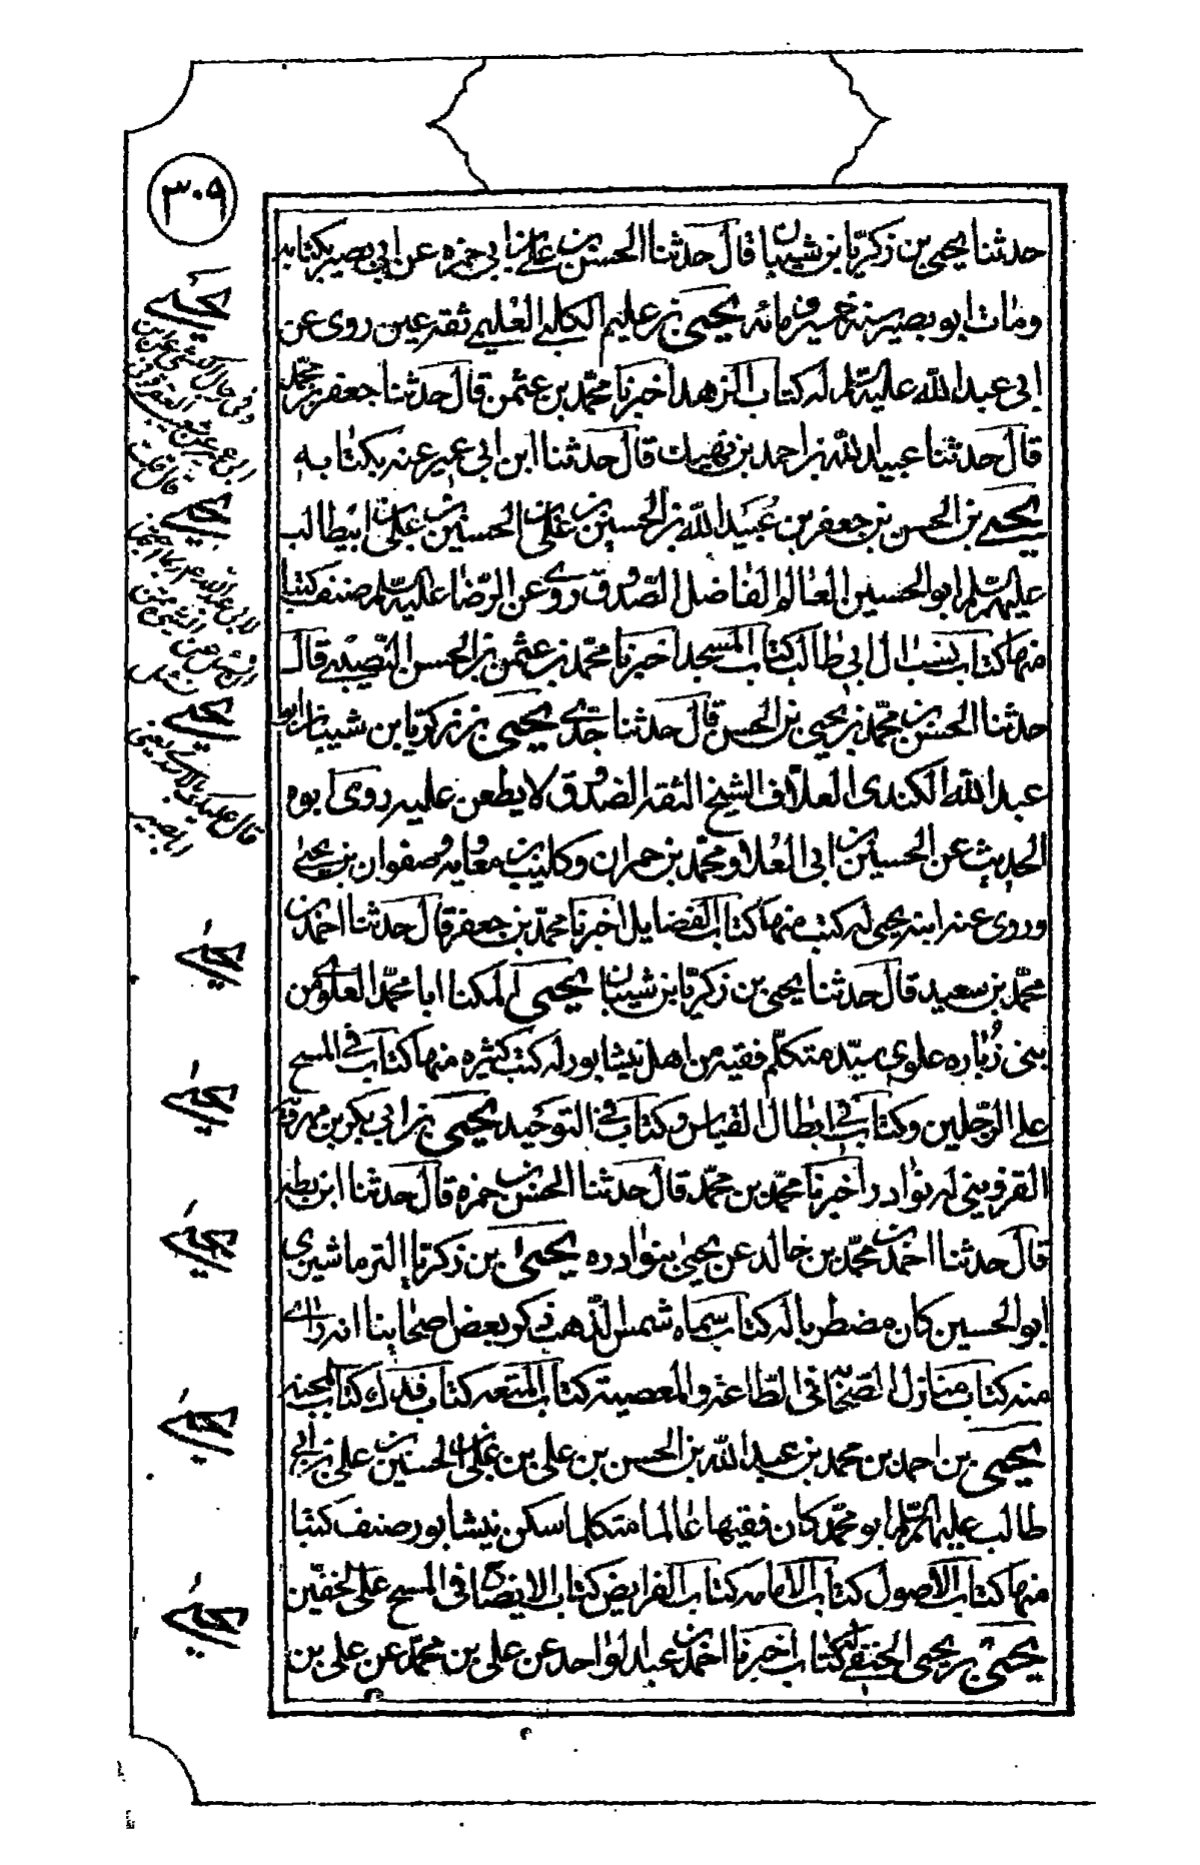 ٣٠٩
حدثنا يحيى بن زكريا بن شيبان قال حدثنا الحسن بن علي بن ابي حمزه عن ابي بصير بكتابه
ومات ابو بصير سنة خمسين ومائه يحيى بن عليم الكلبي العليمي ثقه عين روى عن
ابي عبد الله عليه السلم له كتاب الزهد اخبرنا محمد بن عثمن قال حدثنا جعفر بن محمد
قال حدثنا عبيد الله بن احمد بن نهيك قال حدثنا ابن ابي عمير عنه بكتابه
يحيى بن الحسن بن جعفر بن عبيد الله بن الحسين بن علي بن الحسين بن علي بن ابيطالب
عليهم السلم ابو الحسين العالم الفاضل الصدوق روى عن الرضا عليه السلم صنف كتبا
منها كتاب نسب ال ابي طالب كتاب المسجد اخبرنا محمد بن عثمن بن الحسن النصيبي قال
حدثنا الحسن بن محمد بن يحيى بن الحسن قال حدثنا جدي يحيى بن زكريا بن شيبان ابو
عبد الله الكندي العلاف الشيخ الثقه الصدوق لا يطعن عليه روى ابوه
الحديث عن الحسين بن ابي العلا ومحمد بن حمران وكليب بن معاويه وصفوان بن يحيى
وروى عنه ابنه يحيى له كتب منها كتاب الفضايل اخبرنا محمد بن جعفر قال حدثنا احمد بن
محمد بن سعيد قال حدثنا يحيى بن زكريا بن شيبان يحيى المكنا ابا محمد العلوي من
بني زباره علوي سيد متكلم فقيه من اهل نيشابور له كتب كثيره منها كتاب في المسح
على الرجلين وكتاب في ابطال القياس وكتاب في التوحيد يحيى بن ابي بكر بن مهرويه
القزويني له نوادر اخبرنا محمد بن محمد قال حدثنا الحسن بن حمزه قال حدثنا ابن بطه
قال حدثنا احمد بن محمد بن خالد عن يحيى بنوادره يحيى بن زكريا الترماشيري
ابو الحسين كان مضطربا له كتاب سماه شمس الذهب ذكر بعض اصحابنا انه راى
منه كتاب منازل الصحابه في الطاعة والمعصية كتاب المتعه كتاب فدك كتاب المحنه
يحيى بن احمد بن محمد بن عبد الله بن الحسن بن علي بن علي بن الحسين بن علي بن ابي
طالب عليهم السلم ابو محمد كان فقيها عالما متكلما سكن نيشابور صنف كتبا
منها كتاب الاصول كتاب الامامه كتاب الفرايض كتاب الايضاح في المسح على الخفين
يحيى بن يحيى الحنفي له كتاب اخبرنا احمد بن عبد الواحد عن علي بن محمد عن علي بن
يحيى
يحيى
يحيى
يحيى
يحيى
يحيى
يحيى
يحيى